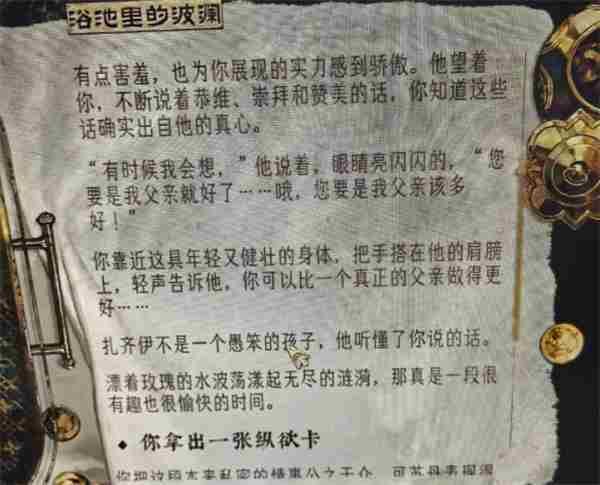 浴池里的波澜
有点害羞，也为你展现的实力感到骄傲。他望着
你，不断说着恭维、崇拜和赞美的话，你知道这些
话确实出自他的真心。
“有时候我会想，”他说着，眼睛亮闪闪的，“您
要是我父亲就好了……哦，您要是我父亲该多
好！”
你靠近这具年轻又健壮的身体，把手搭在他的肩膀
上，轻声告诉他，你可以比一个真正的父亲做得更
好……
扎齐伊不是一个愚笨的孩子，他听懂了你说的话。
漂着玫瑰的水波荡漾起无尽的涟漪，那真是一段很
有趣也很愉快的时间。
◆ 你拿出一张纵欲卡
你把这段本来私密的情事公之于众，可苏丹表现得